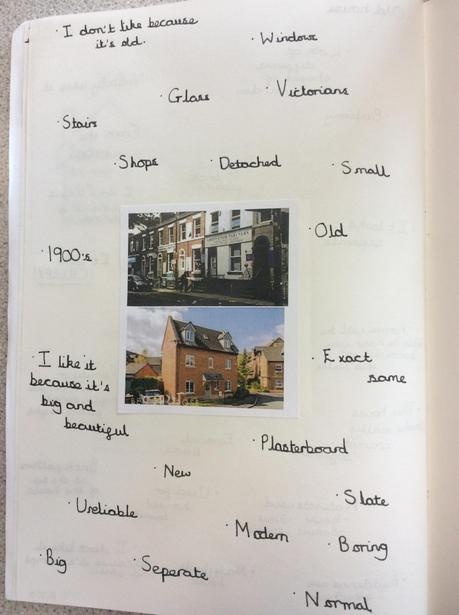 · I don't like because
it's old.
· Windows
· Glass
· Victorians
· Stairs
· Shops
· Detached
· Small
· Old
· 1900's
· I like it
because it's
big and
beautiful
· Exact
same
· Plasterboard
· New
· Slate
· Unreliable
· Modern
· Boring
· Big
· Seperate
· Normal